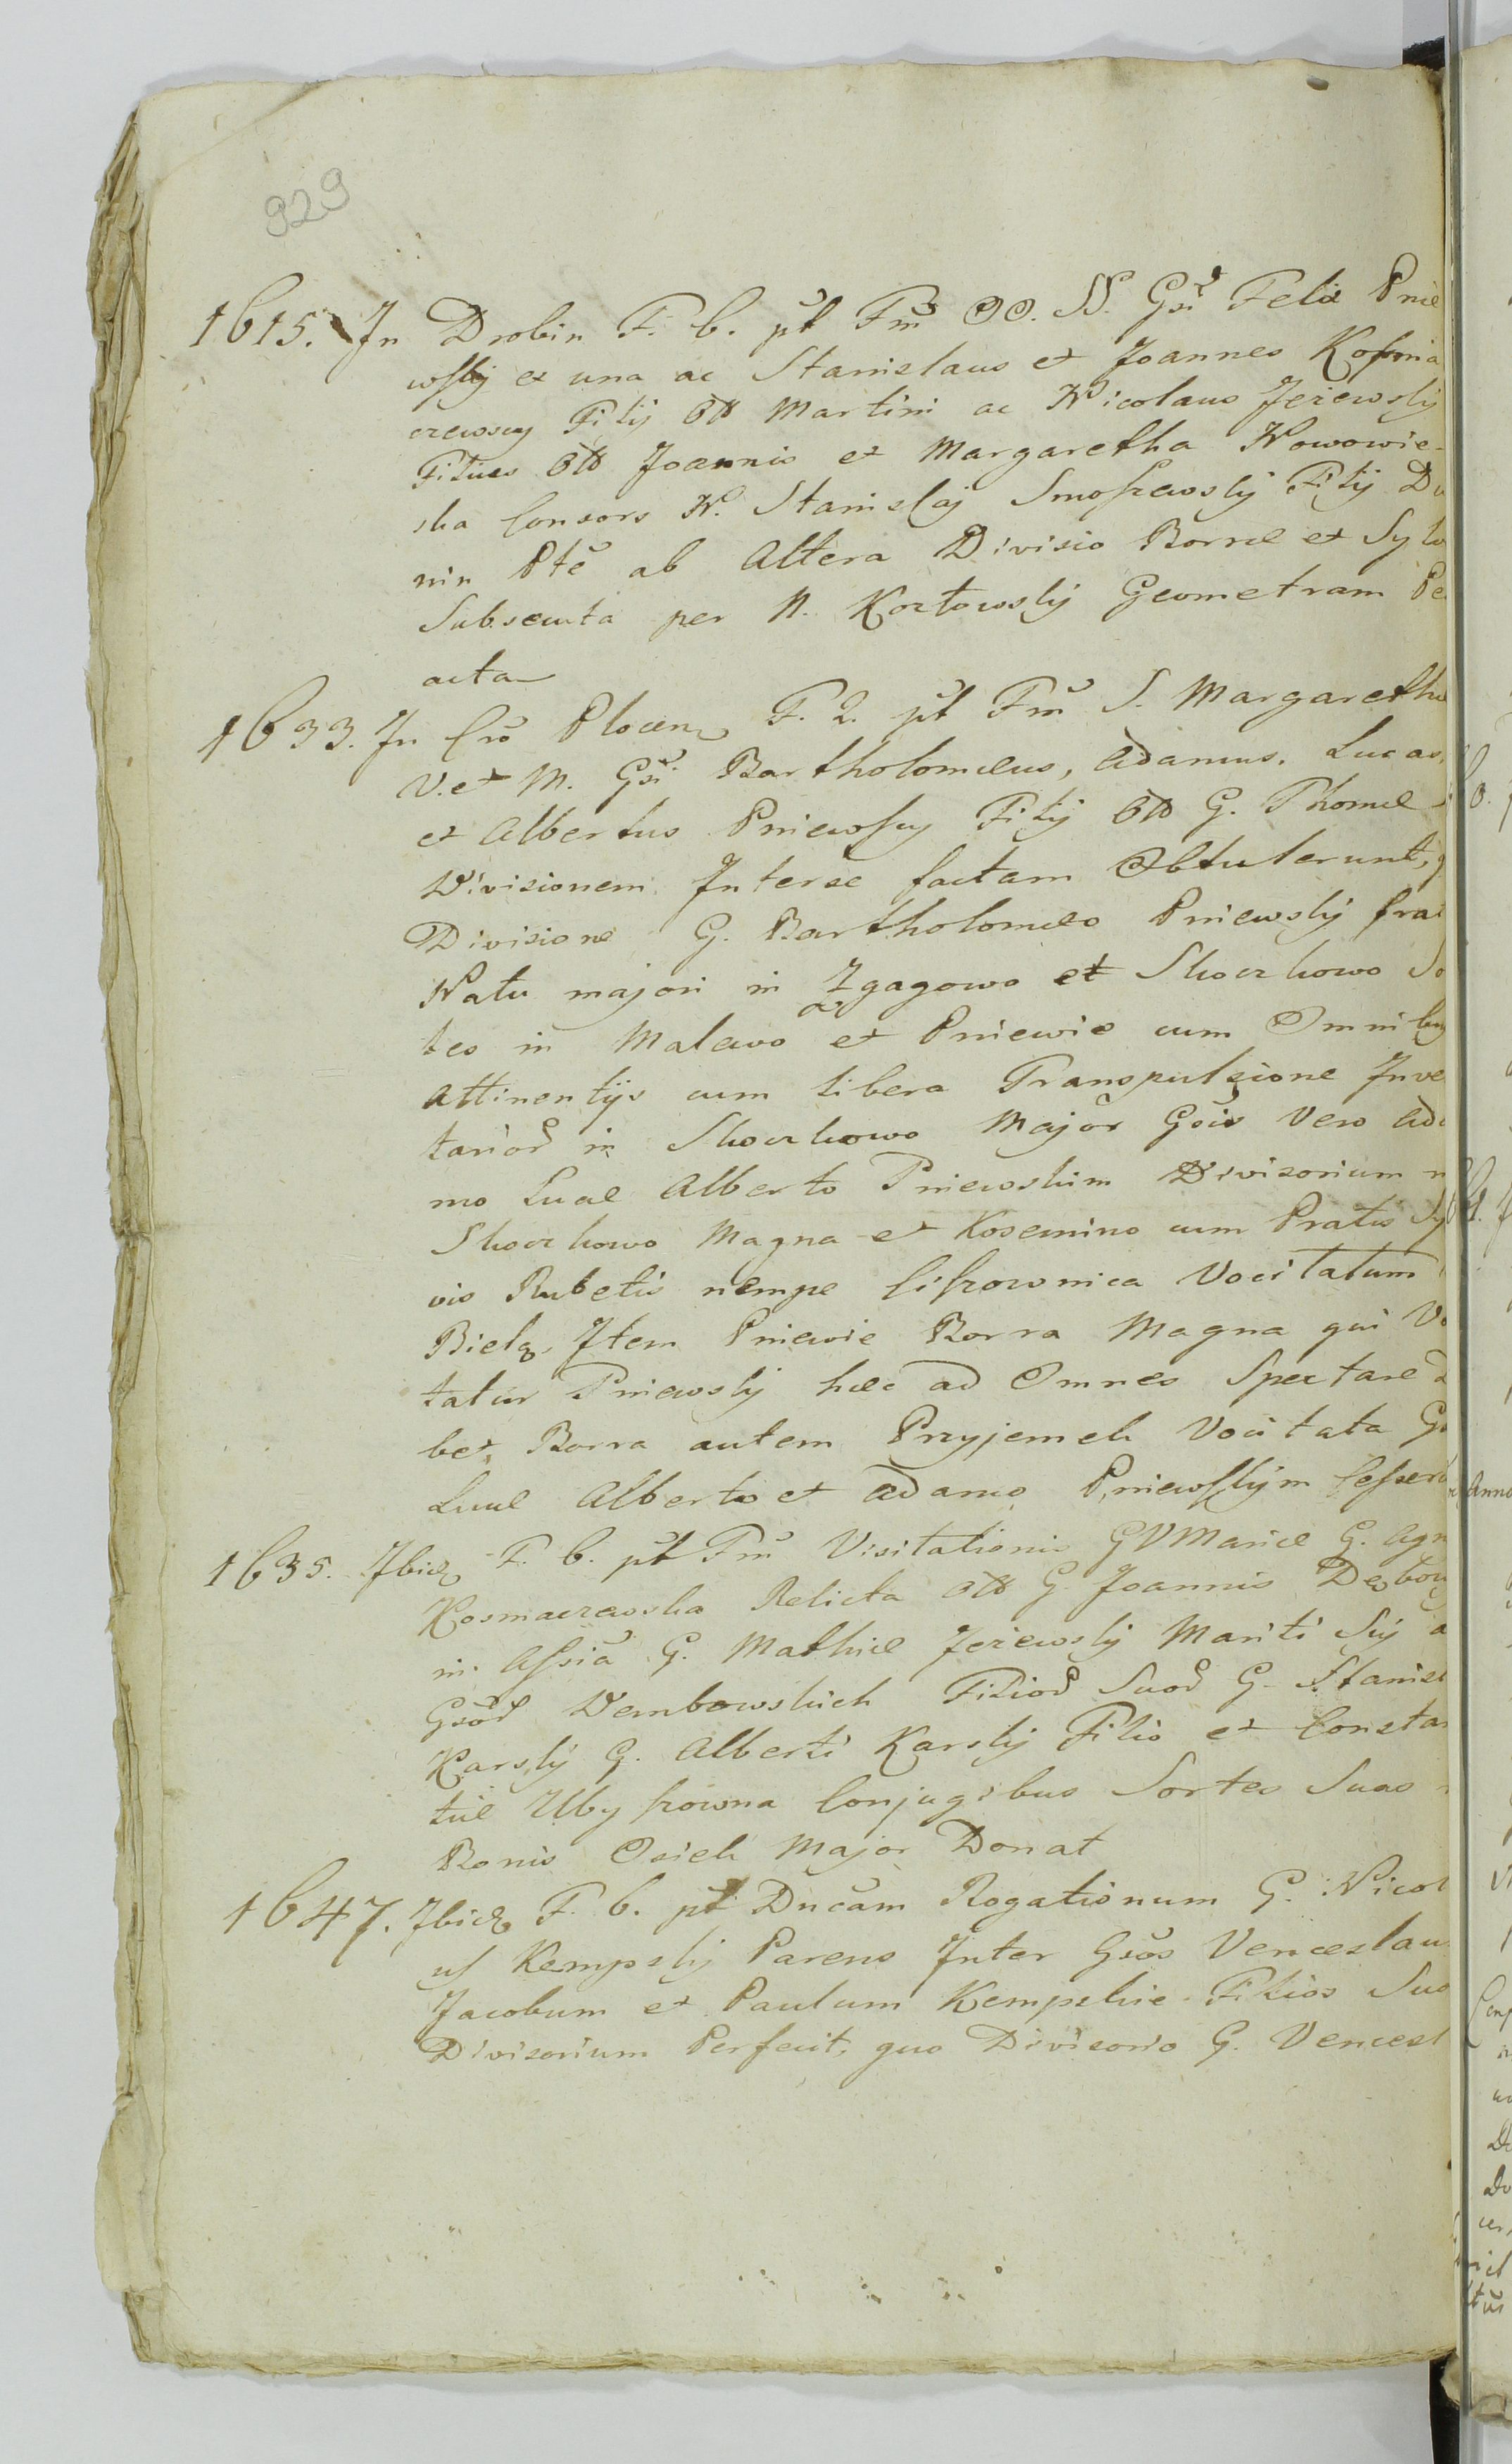 929
1615. In Drobin F. 6. pt Fm OO. SS. Gsi Felix Pnie
wsky ex una ac Stanislaus et Joannes Kosmia
czewscy Filij Olb Martini ac Nicolaus Jeżewsky
Filius Olb Joannis et Margaretha Nowowie-
ska Consors N. Stanislaj Smoszewsky Filij Du
nin Pte ab Altera Divisio Borrae et Sylv
Subsecuta per N. Kozłowsky Geometram Pe
acta
1633. In Cro Plocen F. 2. pt Fm S. Margaretha
V. et M. Gsi Bartholomaeus, Adamus, Lucas
et Albertus Pniewscy Filij Olb G. Thomae
Divisionem Inter se factam Obtulerunt, q
Divisione G. Bartholomaeo Pniewsky frat
Natu majori in Zgagowo et Skoczkowo So
tes in Malewo et Pniewie cum Omnibus
Attinentijs cum libera Transpulsione Inve
tarior in Skoczkowo Major Gsis Vero Ada
mo Lucae Alberto Pniewskim Divisorium n
Skoczkowo Magna et Kosemino cum Pratis Sy
vis Rubetis nempe Ciszownica Vocitatum
Bielę. Item Pniewie Borra Magna qui Vo
tatur Pniewsky haec ad Omnes Spectare d
bet, Borra autem Przyjemek Vocitata G
Lucae Alberto et Adamo Pniewskym Cesser
1635. Ibid F. 6. pt Fm Visitationis GVMariae G. Agn
Kosmaczewska Relicta Olb G. Joannis Dembow
in Assia G. Mathiae Jeżewsky Mariti Sui a
Gsor Dembowskich Filior Suor G. Stanisl
Karsky G. Alberti Karsky Filio et Constan
tiae Ubyszowna Conjugibus Sortes Suas
Bonis Osiek Major Donat
1647. Ibid F. 6. pt Dncam Rogationum G. Nicol
us Kempsky Parens Inter Gsos Venceslau
Jacobum et Paulum Kempskie Filios Suo
Divisorium Perfecit, quo Divisorio G. Vencesl